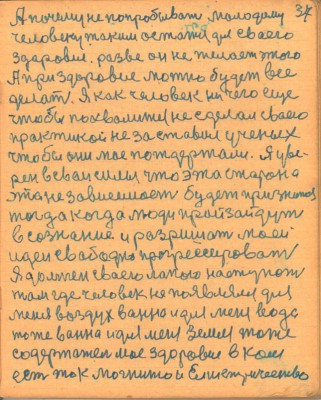 37
А почему не попробыват молодому
человеку таким остатся для своего
здоровие. разве он не желает этого
А при здоровие можно будет все
делат. Я как человек ни чего еще
чтобы похвалитс не сделал своею
практикой не заставил ученых
чтобы они мое потдержали. Я уве-
рен в свои силы что эта сторона
эта не зависимост будет признатоя
тогда когда люди произайдут
в сознание и разришат моей
идеи свабодно прогрессироват
Я должен своего напого наступат
там где человек не появлялся для
меня воздух ванна и для меня вода
тоже ванна и для меня земля тоже
содержател мое здоровие в ком
ест ток могнито и Елистричество